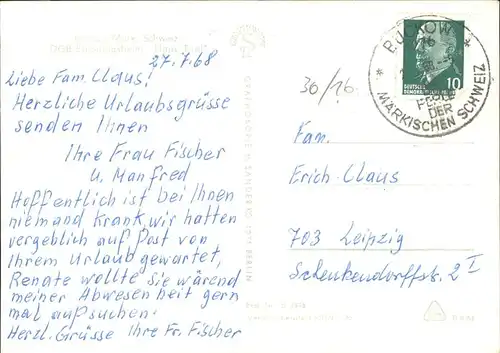 27.7.68
Liebe Fam. Claus!
Herzliche Urlaubsgrüsse
senden Ihnen
Ihre Frau Fischer
u. Manfred
Hoffentlich ist bei Ihnen
niemand Krank, wir hatten
vergeblich auf Post von
Ihrem Urlaub gewartet,
Renate wollte Sie wärend
meiner Abwesenheit gern
mal aufsuchen.
Herzl. Grüsse Ihre Fr. Fischer
30/16
BUCKOW
PERLE
DER
MÄRKISCHEN SCHWEIZ
10
DEUTSCHE
Fam.
Erich Claus
703 Leipzig
Schenkendorffstr. 2 I